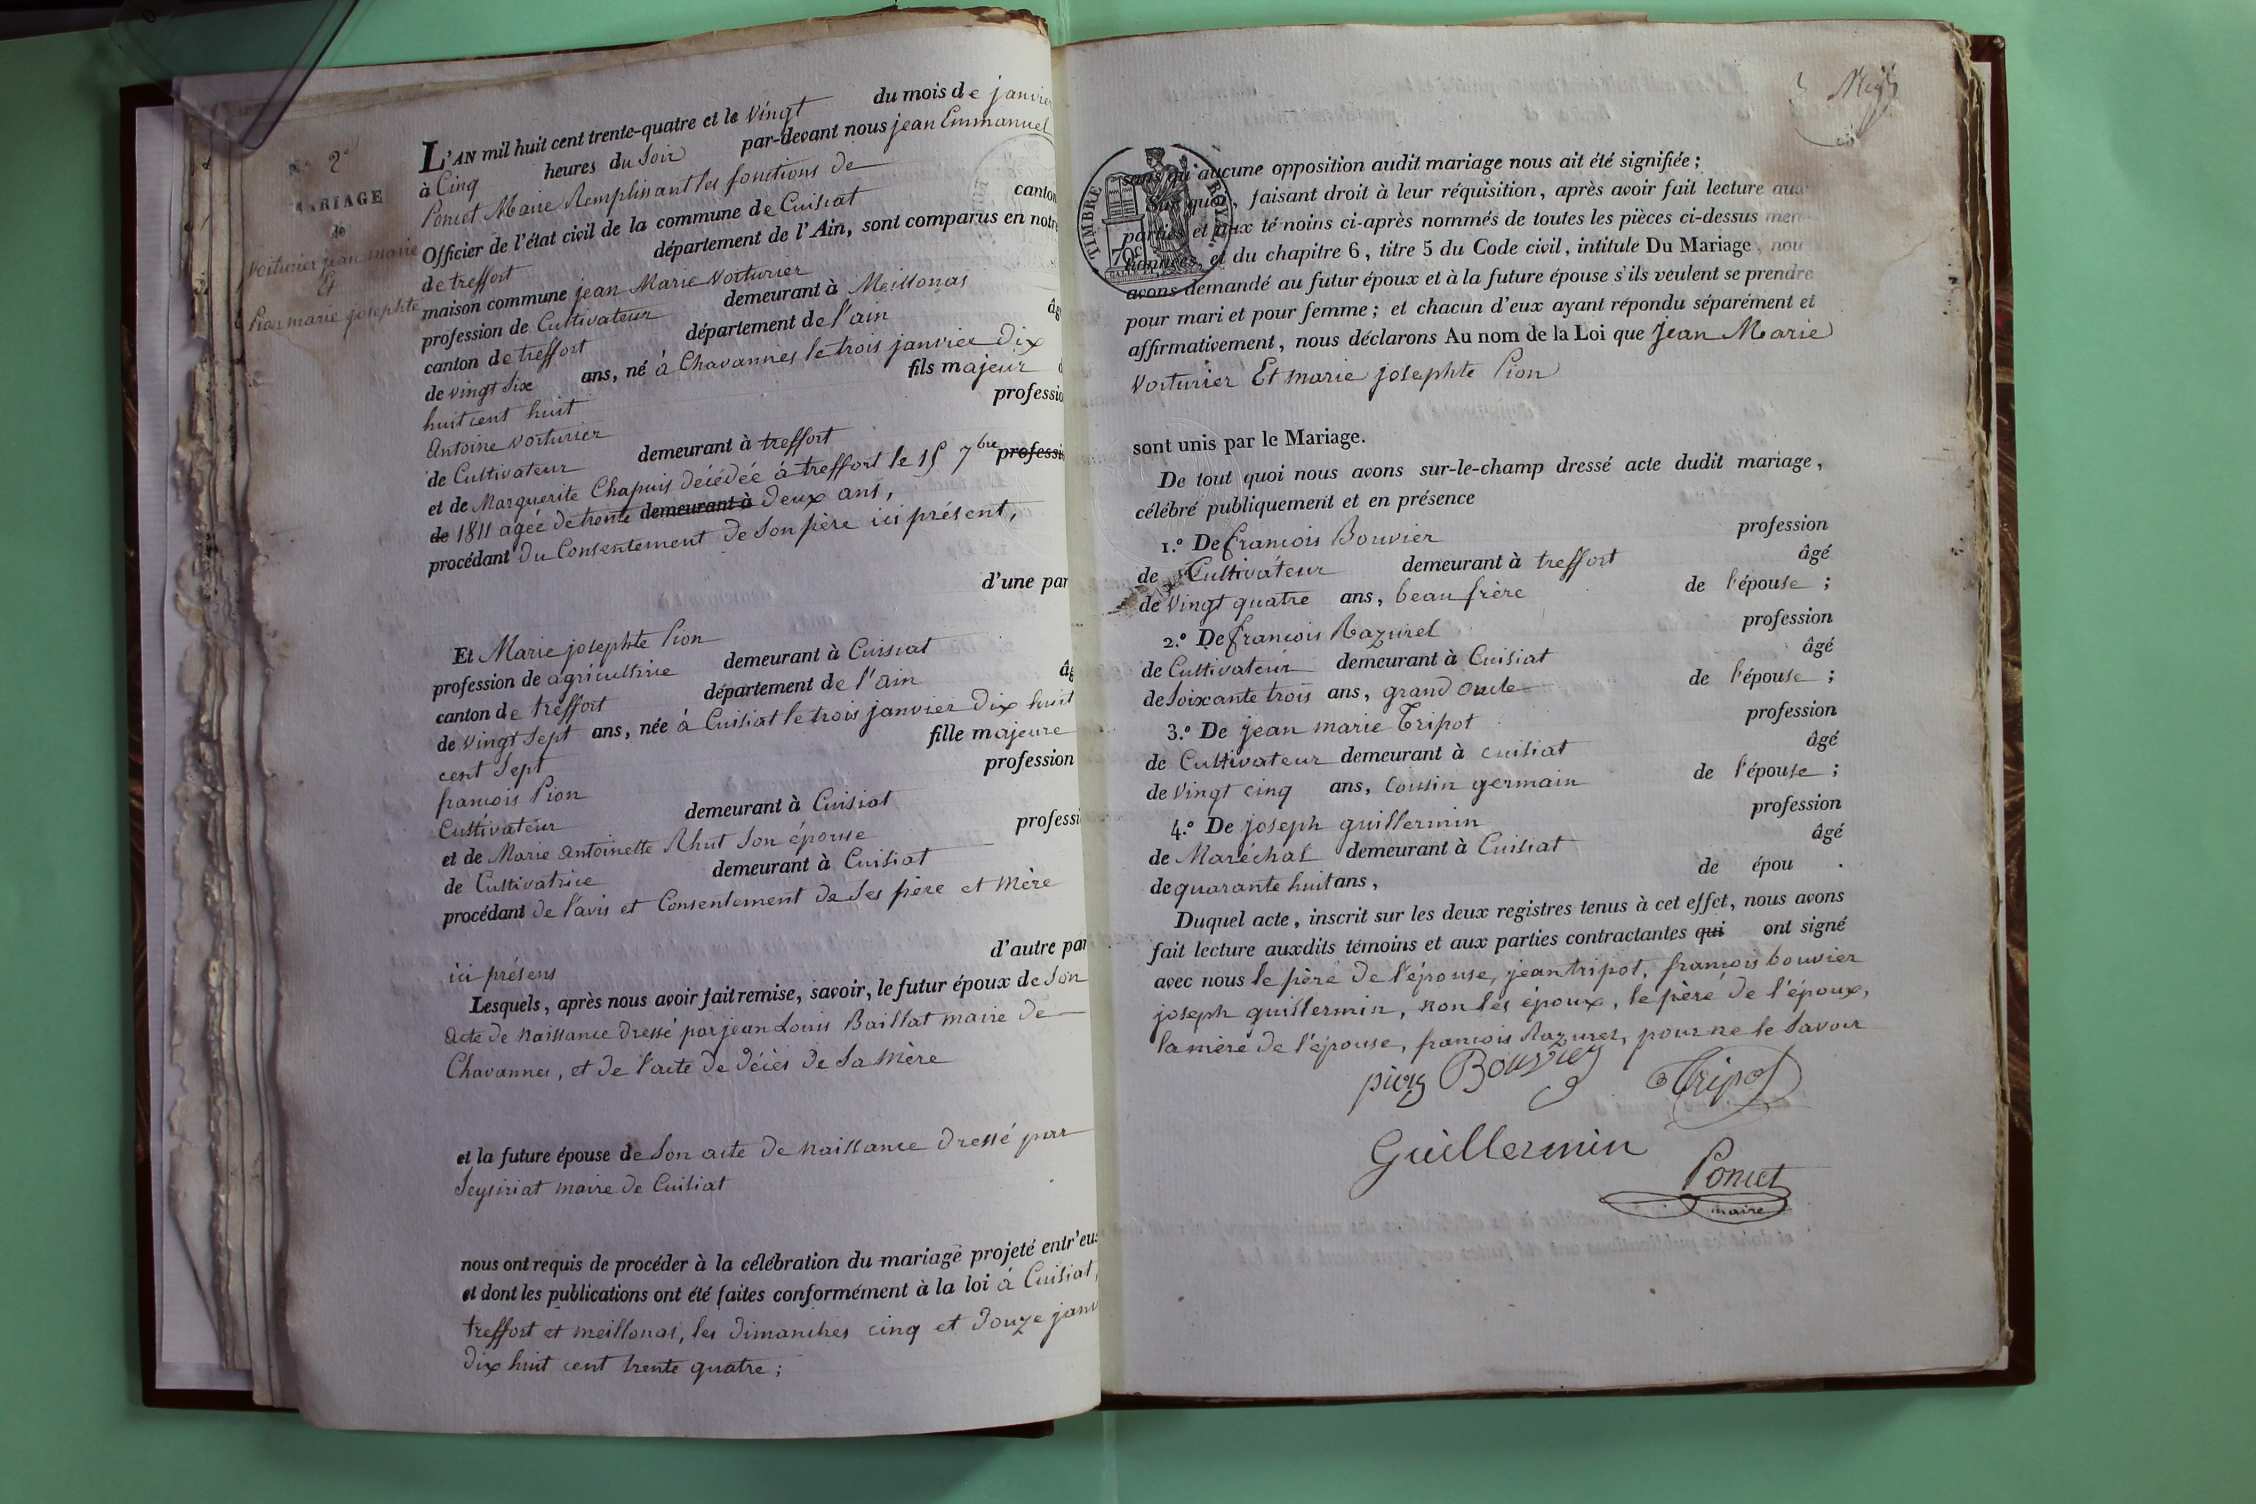 N.º 2
MARIAGE
de
Voiturier jean marie
Et
Pion marie josephte
L'AN mil huit cent trente-quatre et le Vingt du mois de janvier
à Cinq heures du Soir par-devant nous jean Emmanuel
Poncet Maire Remplissant les fonctions de
Officier de l'état civil de la commune de Cuisiat canton
de treffort département de l'Ain, sont comparus en notre
maison commune jean Marie Voiturier
profession de Cultivateur demeurant à Meillonas
canton de treffort département de l'ain âg
de vingt Six ans, né à Chavannes le trois janvier Dix
huit cent huit fils majeur
Antoine Voiturier professio
de Cultivateur demeurant à treffort
et de Marguerite Chapuis décédée à treffort le 15 7bre professi
de 1811 agée de trente demeurant à Deux ans,
procédant du Consentement de Son père ici présent,
d'une par
Et Marie josephte Pion
profession de agricultrice demeurant à Cuisiat
canton de treffort département de l'ain âg
de Vingt Sept ans, née à Cuisiat le trois janvier Dix huit
cent Sept fille majeure
francois Pion profession
Cultivateur demeurant à Cuisiat
et de Marie antoinette Rhut Son épouse professi
de Cultivatrice demeurant à Cuisiat
procédant de l'avis et Consentement de Ses père et Mère
ici présens d'autre par
Lesquels, après nous avoir fait remise, savoir, le futur époux de Son
acte de Naissance dressé par jean Louis Baillat maire de
Chavannes, et de l'acte de décès de Sa Mère
et la future épouse de Son acte de Naissance dressé par
Seysiriat maire de Cuisiat
nous ont requis de procéder à la célébration du mariage projeté entr'eux
et dont les publications ont été faites conformément à la loi à Cuisiat,
treffort et meillonas, les dimanches cinq et Douze janv
Dix huit cent trente quatre ;
TIMBRE ROYAL
70c
sans qu'aucune opposition audit mariage nous ait été signifiée ;
Sur quoi, faisant droit à leur réquisition, après avoir fait lecture aux
parties et aux témoins ci-après nommés de toutes les pièces ci-dessus men
tionnées, et du chapitre 6, titre 5 du Code civil, intitule Du Mariage, nou
avons demandé au futur époux et à la future épouse s'ils veulent se prendre
pour mari et pour femme ; et chacun d'eux ayant répondu séparément et
affirmativement, nous déclarons Au nom de la Loi que Jean Marie
Voiturier Et marie josephte Pion
sont unis par le Mariage.
De tout quoi nous avons sur-le-champ dressé acte dudit mariage,
célébré publiquement et en présence
1.º De francois Bouvier profession
de Cultivateur demeurant à treffort âgé
de Vingt quatre ans, beau frère de l'épouse ;
2.º De francois Razurel profession
de Cultivateur demeurant à Cuisiat âgé
de Soixante trois ans, grand oncle de l'épouse ;
3.º De jean marie Tripot profession
de Cultivateur demeurant à cuisiat âgé
de Vingt cinq ans, Cousin germain de l'épouse ;
4.º De joseph guillermin profession
de Maréchal demeurant à Cuisiat âgé
de quarante huit ans, de épou .
Duquel acte, inscrit sur les deux registres tenus à cet effet, nous avons
fait lecture auxdits témoins et aux parties contractantes qui ont signé
avec nous le père de l'épouse, jean tripot, francois bouvier
joseph guillermin, non les époux, le père de l'époux,
la mère de l'épouse, francois Razurel, pour ne le Savoir
Bouvier Tripot
Guillermin
Poncet
maire